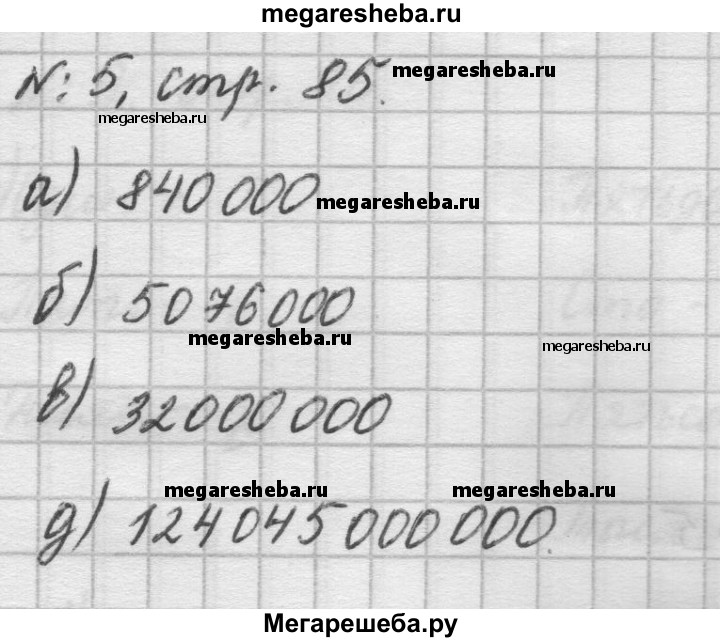 megaresheba.ru
№: 5, стр. 85.
megaresheba.ru
megaresheba.ru
а) 840 000
megaresheba.ru
б) 5 076 000
megaresheba.ru
megaresheba.ru
в) 32 000 000
megaresheba.ru megaresheba.ru
д) 124 045 000 000.
Мегарешеба.ру